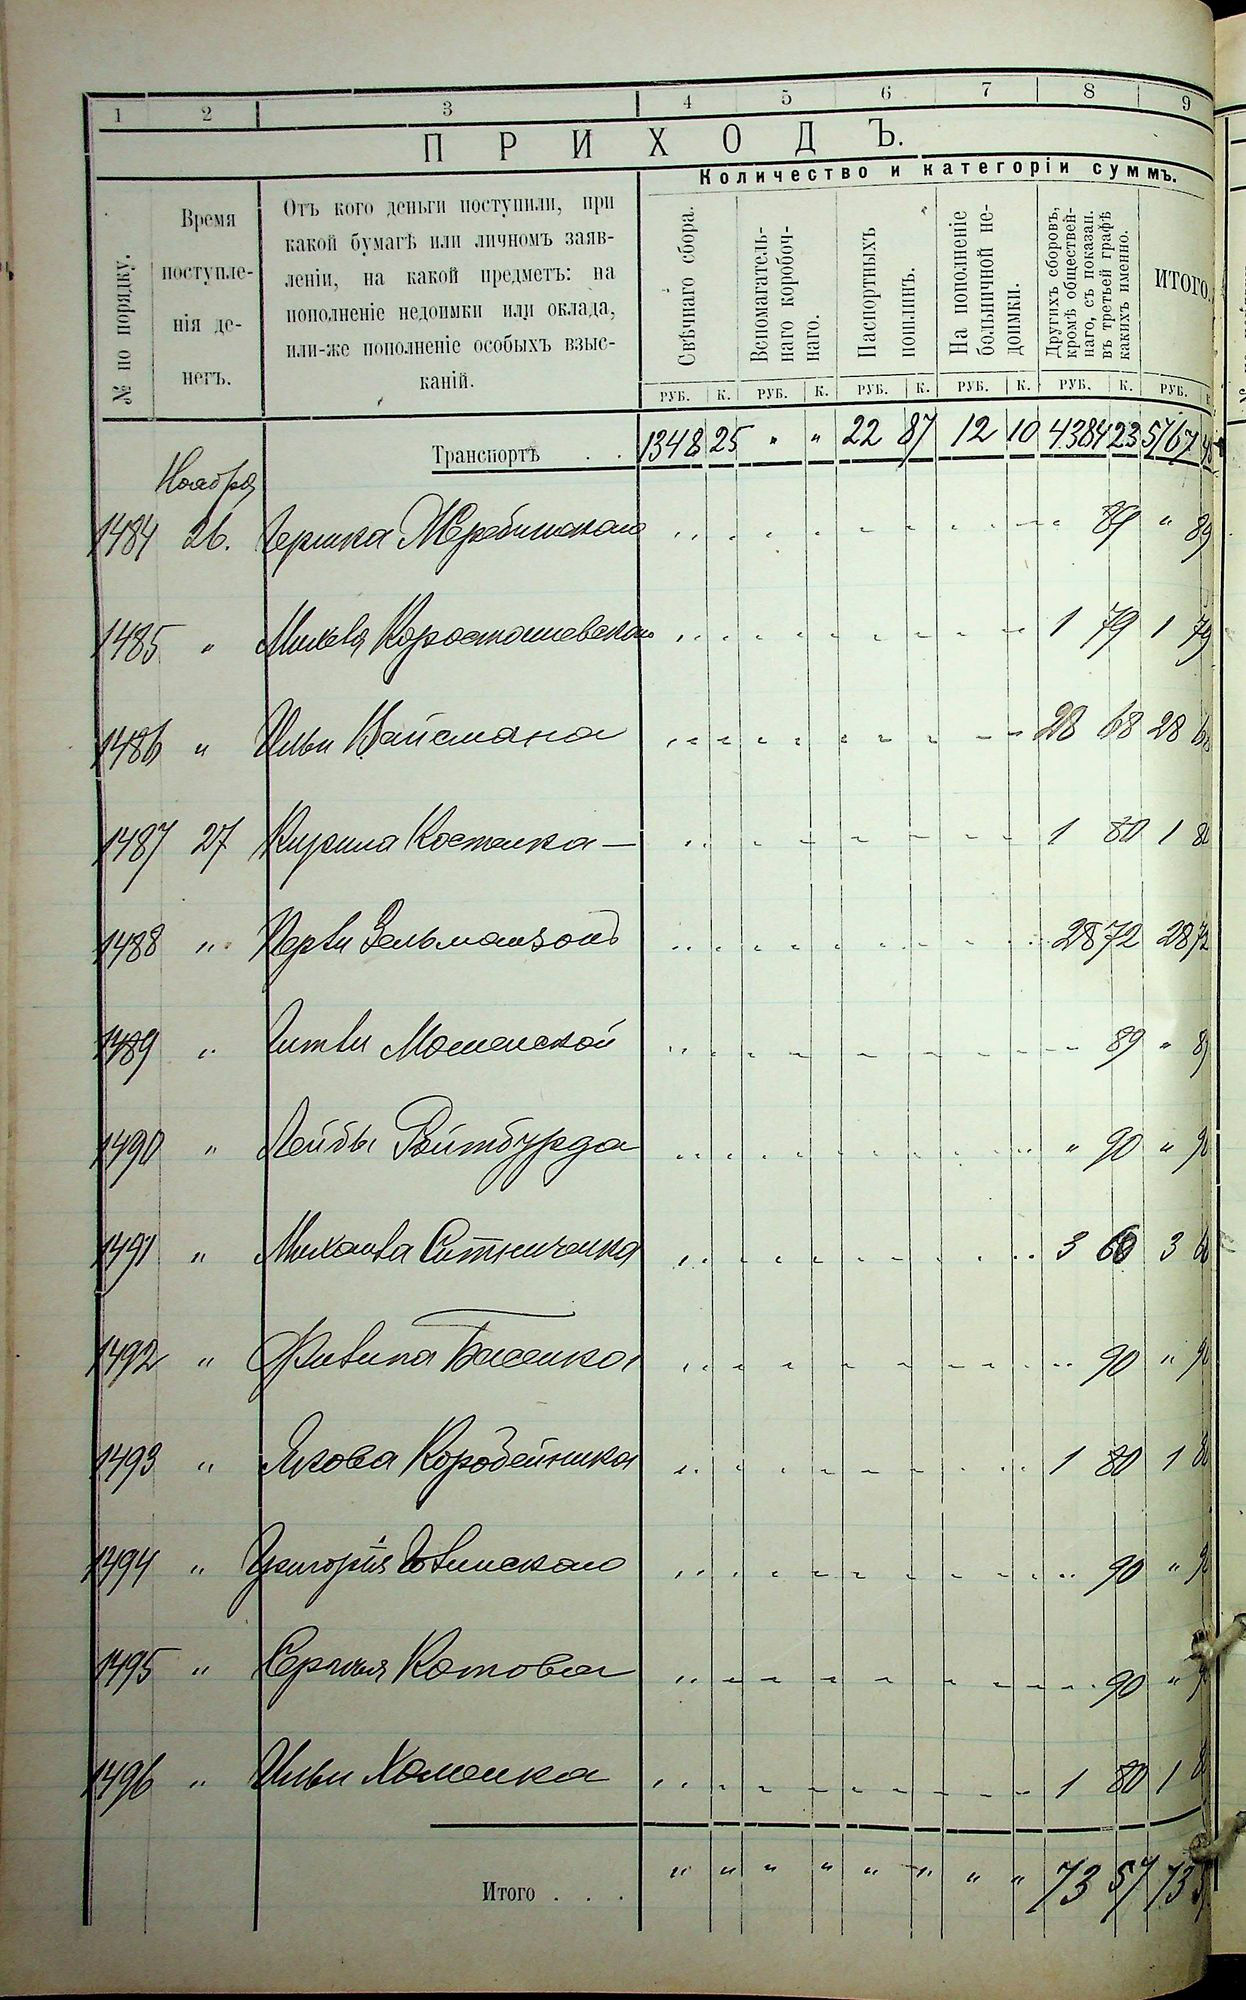 1 2 3 4 5 6 7 8 9
ПРИХОДЪ.
Количество и категоріи суммъ.
№ по порядку.
Время
поступле-
нія де-
негъ.
Отъ кого деньги поступили, при
какой бумагѣ или личномъ заяв-
леніи, на какой предметъ: на
пополненіе недоимки или оклада,
или-же пополненіе особыхъ взыс-
каній.
Свѣчнаго сбора.
Вспомагатель-
наго коробоч-
наго.
Паспортныхъ
пошлинъ.
На пополненіе
больничной не-
доимки.
Другихъ сборовъ,
кромѣ обществен-
наго, съ показан.
въ третьей графѣ
какихъ именно.
ИТОГО.
РУБ. К. РУБ. К. РУБ. К. РУБ. К. РУБ. К. РУБ.
Транспортъ . . 1348 25 " " 22 87 12 10 4384 23 5767
Ноября
1484 26. Гершка Жеребинскаго 89 " 89
1485 " Михеля Коростишевскаго 1 79 1 79
1486 " Ильи Вайсмана 28 68 28 68
1487 27 Кирила Костенка — 1 80 1 80
1488 " Перли Зельманзонъ 28 72 28 72
1489 " Гитли Мошенской 89 " 89
1490 " Лейбы Ройтбурда " 90 " 90
1491 " Михаила Ситниченка 3 60 3 60
1492 " Филипа Басенка 90 " 90
1493 " Якова Коробейника 1 80 1 80
1494 " Григорія 90 " 90
1495 " Сергѣя Котова 90 " 90
1496 " Ильи Хоменка 1 80 1 80
Итого . . . " " " " " " " " 73 57 73